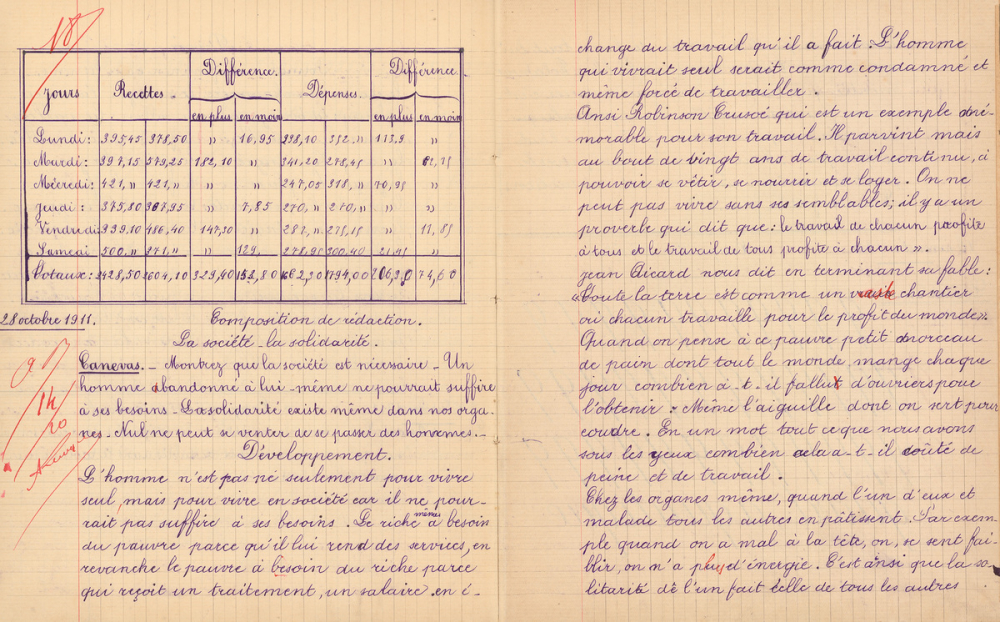 18
Jours Recettes Différence. Dépenses. Différence
en plus en moins en plus en moins
Lundi: 395,45 378,50 " 16,95 238,10 352," 113,9 "
Mardi: 397,15 579,25 182,10 " 341,20 278,45 "
Mercredi: 421," 421," " " 247,05 318," 70,95 "
Jeudi: 375,80 367,95 " 7,85 270," 270," " "
Vendredi 339.10 486,40 147,30 " 287," 275,15 " 11,85
Samedi 500," 271," " 129, 278,95 300,40 21,45 "
Totaux: 2428,50 2604,10 329,40 153,80 1662,30 1794,00 206,30 74,60
28 octobre 1911. Composition de rédaction.
La société - la solidarité.
Canevas. - Montrez que la société est nécessaire - Un
homme abandonné à lui-même ne pourrait suffire
à ses besoins - La solidarité existe même dans nos orga-
nes - Nul ne peut se venter de se passer des hommes. -
14
20
Développement.
L'homme n'est pas né seulement pour vivre
seul, mais pour vivre en société car il ne pour-
rait pas suffire à ses besoins. Le riche même à besoin
du pauvre parce qu'il lui rend des services, en
revanche le pauvre à besoin du riche parce
qui reçoit un traitement, un salaire en é-
change du travail qu'il a fait. L'homme
qui vivrait seul serait comme condamné et
même forcé de travailler.
Ansi Robinson Crusoé qui est un exemple mé-
morable pour son travail. Il parvint mais
au bout de vingt ans de travail continu, à
pouvoir se vêtir, se nourrir et se loger. On ne
peut pas vivre sans ses semblables; il y a un
proverbe qui dit que: le travail de chacun profite
à tous et le travail de tous profite à chacun ».
Jean Aicard nous dit en terminant sa fable:
« Toute la terre est comme un vaste chantier
où chacun travaille pour le profit du monde».
Quand on pense à ce pauvre petit morceau
de pain dont tout le monde mange chaque
jour combien a-t-il fallut d'ouvriers pour
l'obtenir. Même l'aiguille dont on sert pour
coudre. En un mot tout ce que nous avons
sous les yeux combien cela a-t-il coûté de
peine et de travail.
Chez les organes même, quand l'un d'eux et
malade tous les autres en pâtissent. Par exem-
ple quand on a mal à la tête, on, se sent fai-
blir, on n'a plus d'énergie. C'est ainsi que la so-
litarité de l'un fait celle de tous les autres